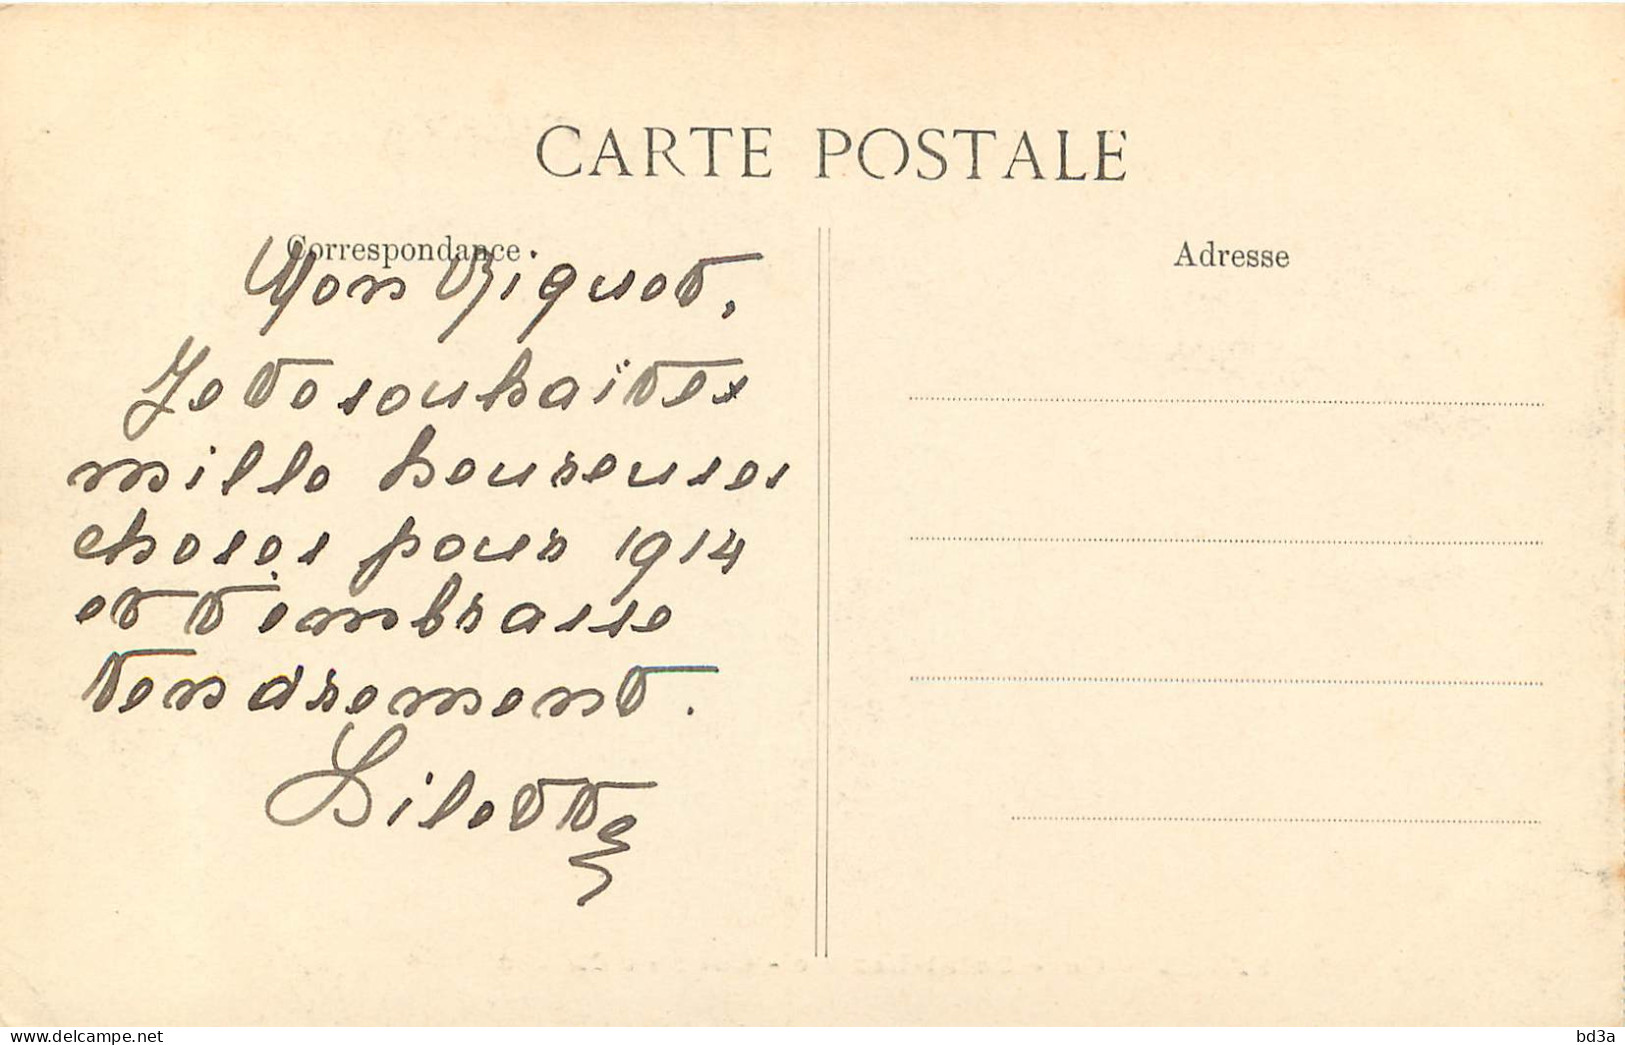 CARTE POSTALE
Correspondance
Adresse
Mon Riquet,
Je te souhaites
mille heureuses
choses pour 1914
et t'embrasse
tendrement.
Lilette
www.delcampe.net
bd3a